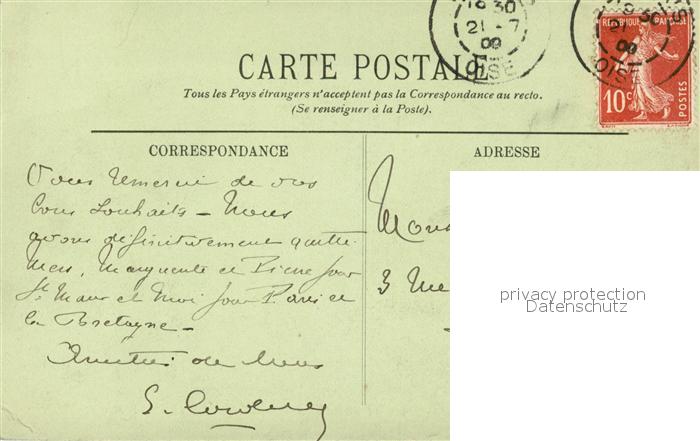 10 30
21 - 7
09
OISE
30
21
09
OISE
RÉPUBLIQUE FRANÇAISE
10c
POSTES
CARTE POSTALE
Tous les Pays étrangers n'acceptent pas la Correspondance au recto.
(Se renseigner à la Poste).
CORRESPONDANCE
ADRESSE
Vous remercie de vos
bons souhaits - Nous
avons définitivement quitté
Mers, Marguerite et Pierre pour
St Maur et moi pour Paris et
la Bretagne -
Amitiés de tous
3 Rue
privacy protection
Datenschutz